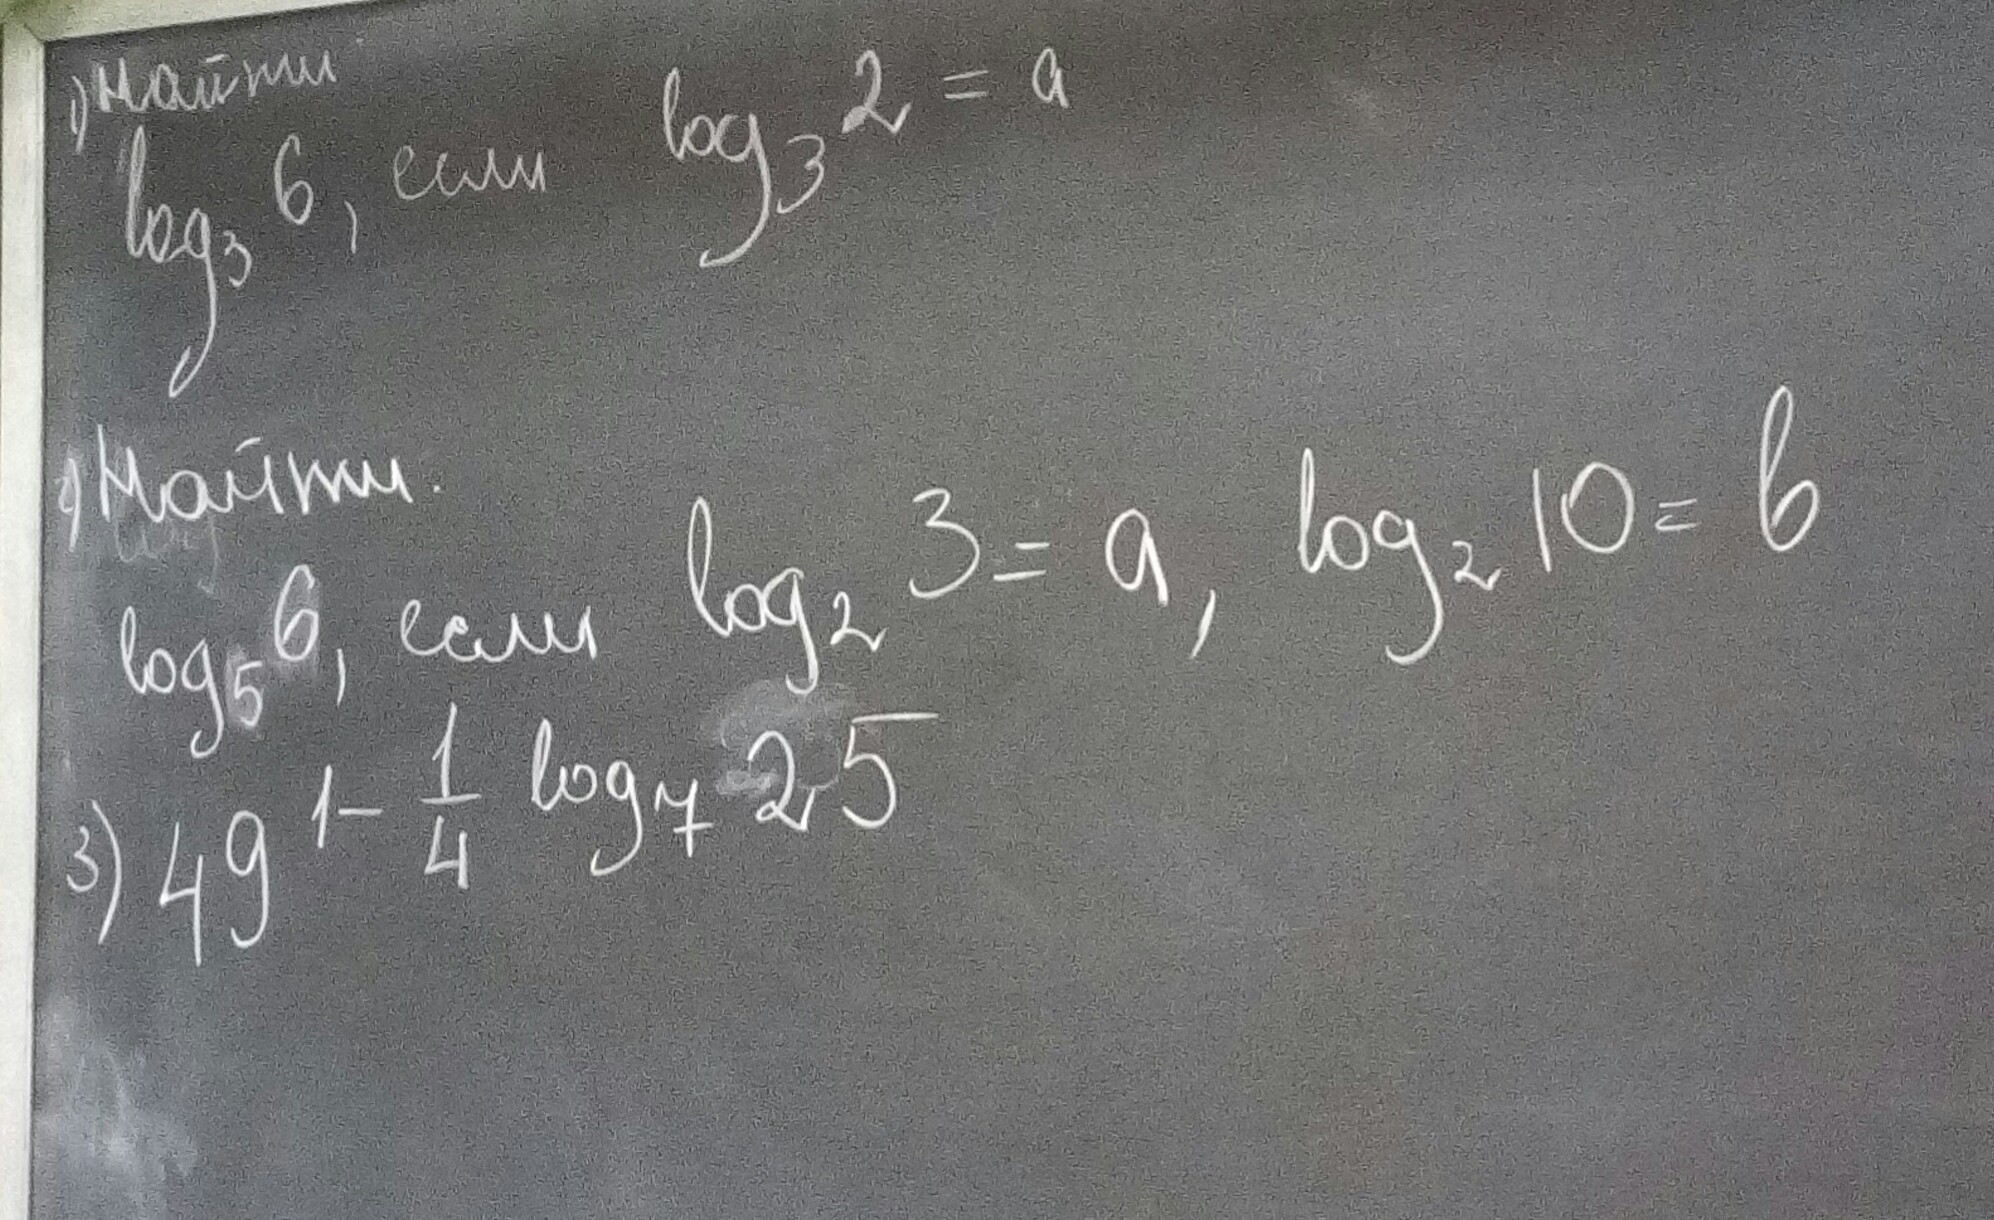 1) Найти
log₃ 6, если log₃ 2 = a
2) Найти.
log₅ 6, если log₂ 3 = a, log₂ 10 = b
3) 49^(1 - 1/4 log₇ 25)